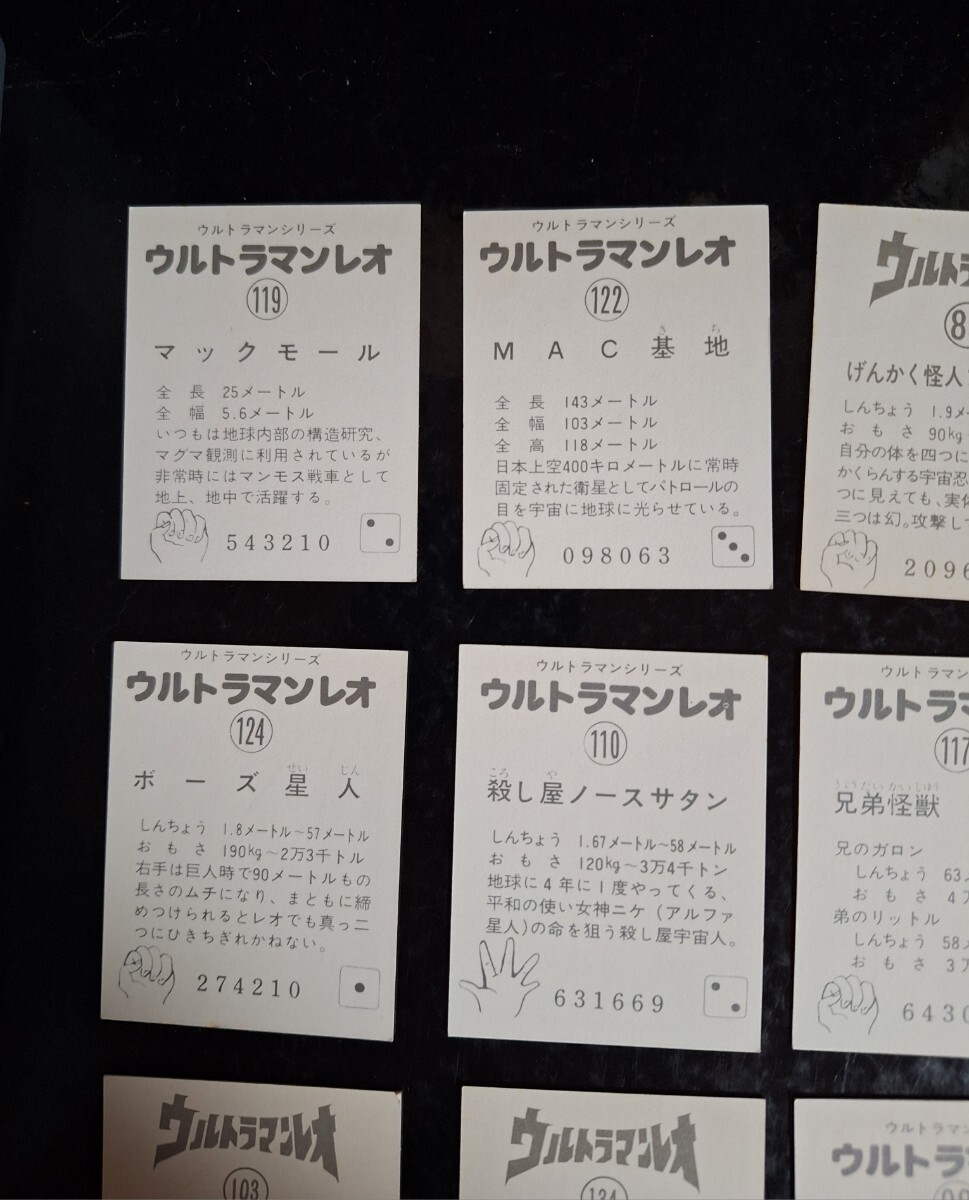 ウルトラマンシリーズ
ウルトラマンレオ
119
マックモール
全長 25メートル
全幅 5.6メートル
いつもは地球内部の構造研究、
マグマ観測に利用されているが
非常時にはマンモス戦車として
地上、地中で活躍する。
543210
ウルトラマンシリーズ
ウルトラマンレオ
122
きち
MAC基地
全長 143メートル
全幅 103メートル
全高 118メートル
日本上空400キロメートルに常時
固定された衛星としてパトロールの
目を宇宙に地球に光らせている。
098063
ウルトラ
8
げんかく怪人
しんちょう 1.9メー
おもさ 90kg
自分の体を四つに
かくらんする宇宙忍
つに見えても、実体
三つは幻。攻撃し
2096
ウルトラマンシリーズ
ウルトラマンレオ
124
せいじん
ボーズ星人
しんちょう 1.8メートル〜57メートル
おもさ 190kg〜2万3千トル
右手は巨人時で90メートルもの
長さのムチになり、まともに締
めつけられるとレオでも真っ二
つにひきちぎれかねない。
274210
ウルトラマンシリーズ
ウルトラマンレオ
110
ころ や
殺し屋ノースサタン
しんちょう 1.67メートル〜58メートル
おもさ 120kg〜3万4千トン
地球に4年に1度やってくる、
平和の使い女神ニケ(アルファ
星人)の命を狙う殺し屋宇宙人。
631669
ウルトラマン
ウルトラマ
117
きょうだいかいじゅう
兄弟怪獣
兄のガロン
しんちょう 63メ
おもさ 4万
弟のリットル
しんちょう 58メ
おもさ 3万
6430
ウルトラマンレオ
103
ウルトラマンレオ
134
ウルトラマン
ウルトラマ